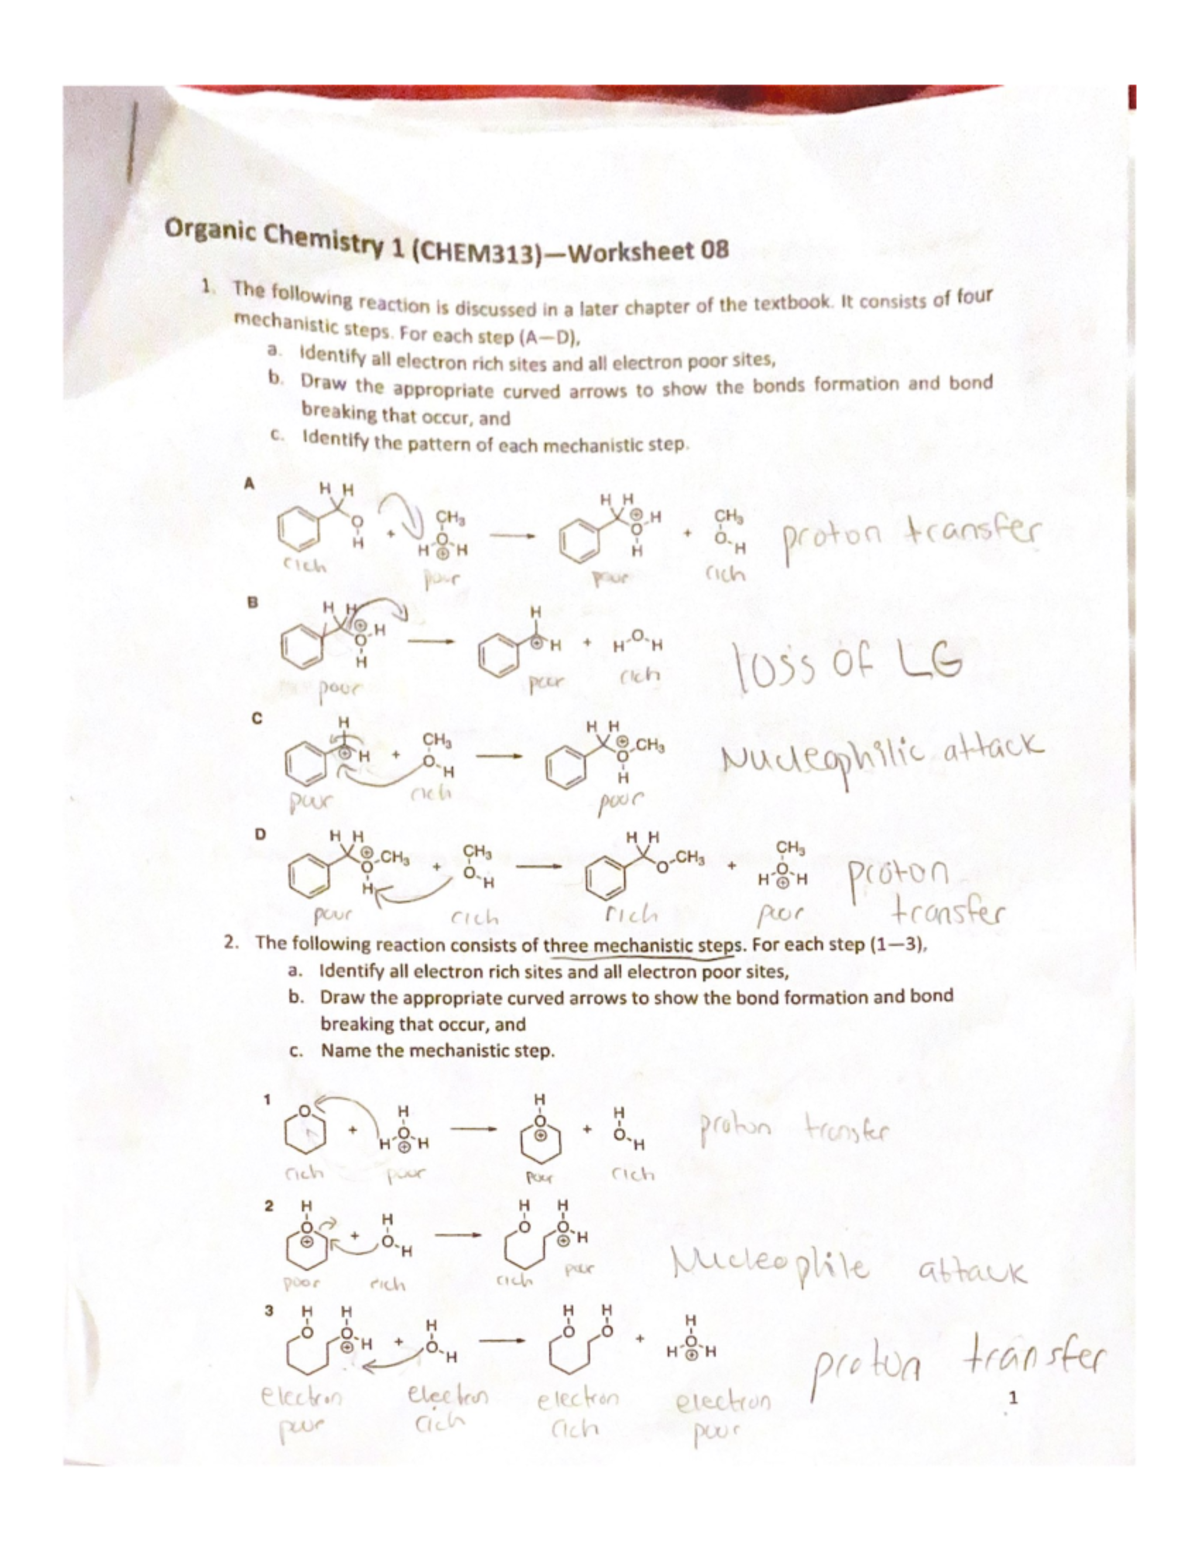 Organic Chemistry 1 (CHEM313)—Worksheet 08
1. The following reaction is discussed in a later chapter of the textbook. It consists of four
mechanistic steps. For each step (A—D),
a. Identify all electron rich sites and all electron poor sites,
b. Draw the appropriate curved arrows to show the bonds formation and bond
breaking that occur, and
c. Identify the pattern of each mechanistic step.
A
H H
O
H
+
CH₃
O
H ⊕ H
H H
⊕ H
O
H
+
CH₃
O
H
proton transfer
rich
poor
poor
rich
B
H H
⊕ H
O
H
H
⊕ H
+
H O H
loss of LG
poor
poor
rich
C
H
⊕ H
+
CH₃
O
H
H H
⊕ CH₃
O
H
Nucleophilic attack
poor
rich
poor
D
H H
⊕ CH₃
O
H
+
CH₃
O
H
H H
O CH₃
+
CH₃
O
H ⊕ H
proton
transfer
poor
rich
rich
poor
2. The following reaction consists of three mechanistic steps. For each step (1—3),
a. Identify all electron rich sites and all electron poor sites,
b. Draw the appropriate curved arrows to show the bond formation and bond
breaking that occur, and
c. Name the mechanistic step.
1
O
+
H
O
H ⊕ H
H
O
⊕
+
H
O
H
proton transfer
rich
poor
poor
rich
2
H
O
⊕
+
H
O
H
H H
O O
⊕ H
Nucleoplile attack
poor
rich
rich
poor
3
H H
O O
⊕ H
+
H
O
H
H H
O O
+
H
O
H ⊕ H
proton transfer
electron
poor
electron
rich
electron
rich
electron
poor
1